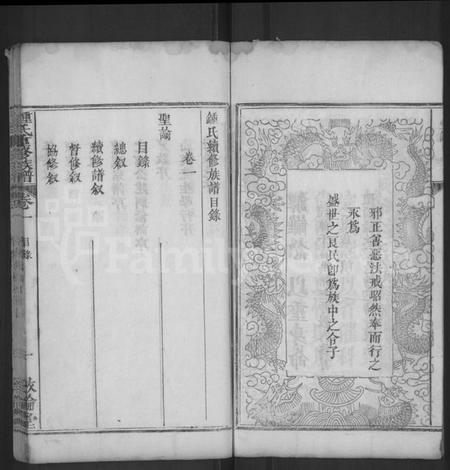 邪正善惡法戒昭然奉而行之
永為
盛世之良民即為族中之令子
鍾氏續修族譜目錄
卷一
聖諭
目錄
總叙
續修譜叙
督修叙
協修叙
鍾氏續修族譜
卷一
目錄
一
敦倫堂